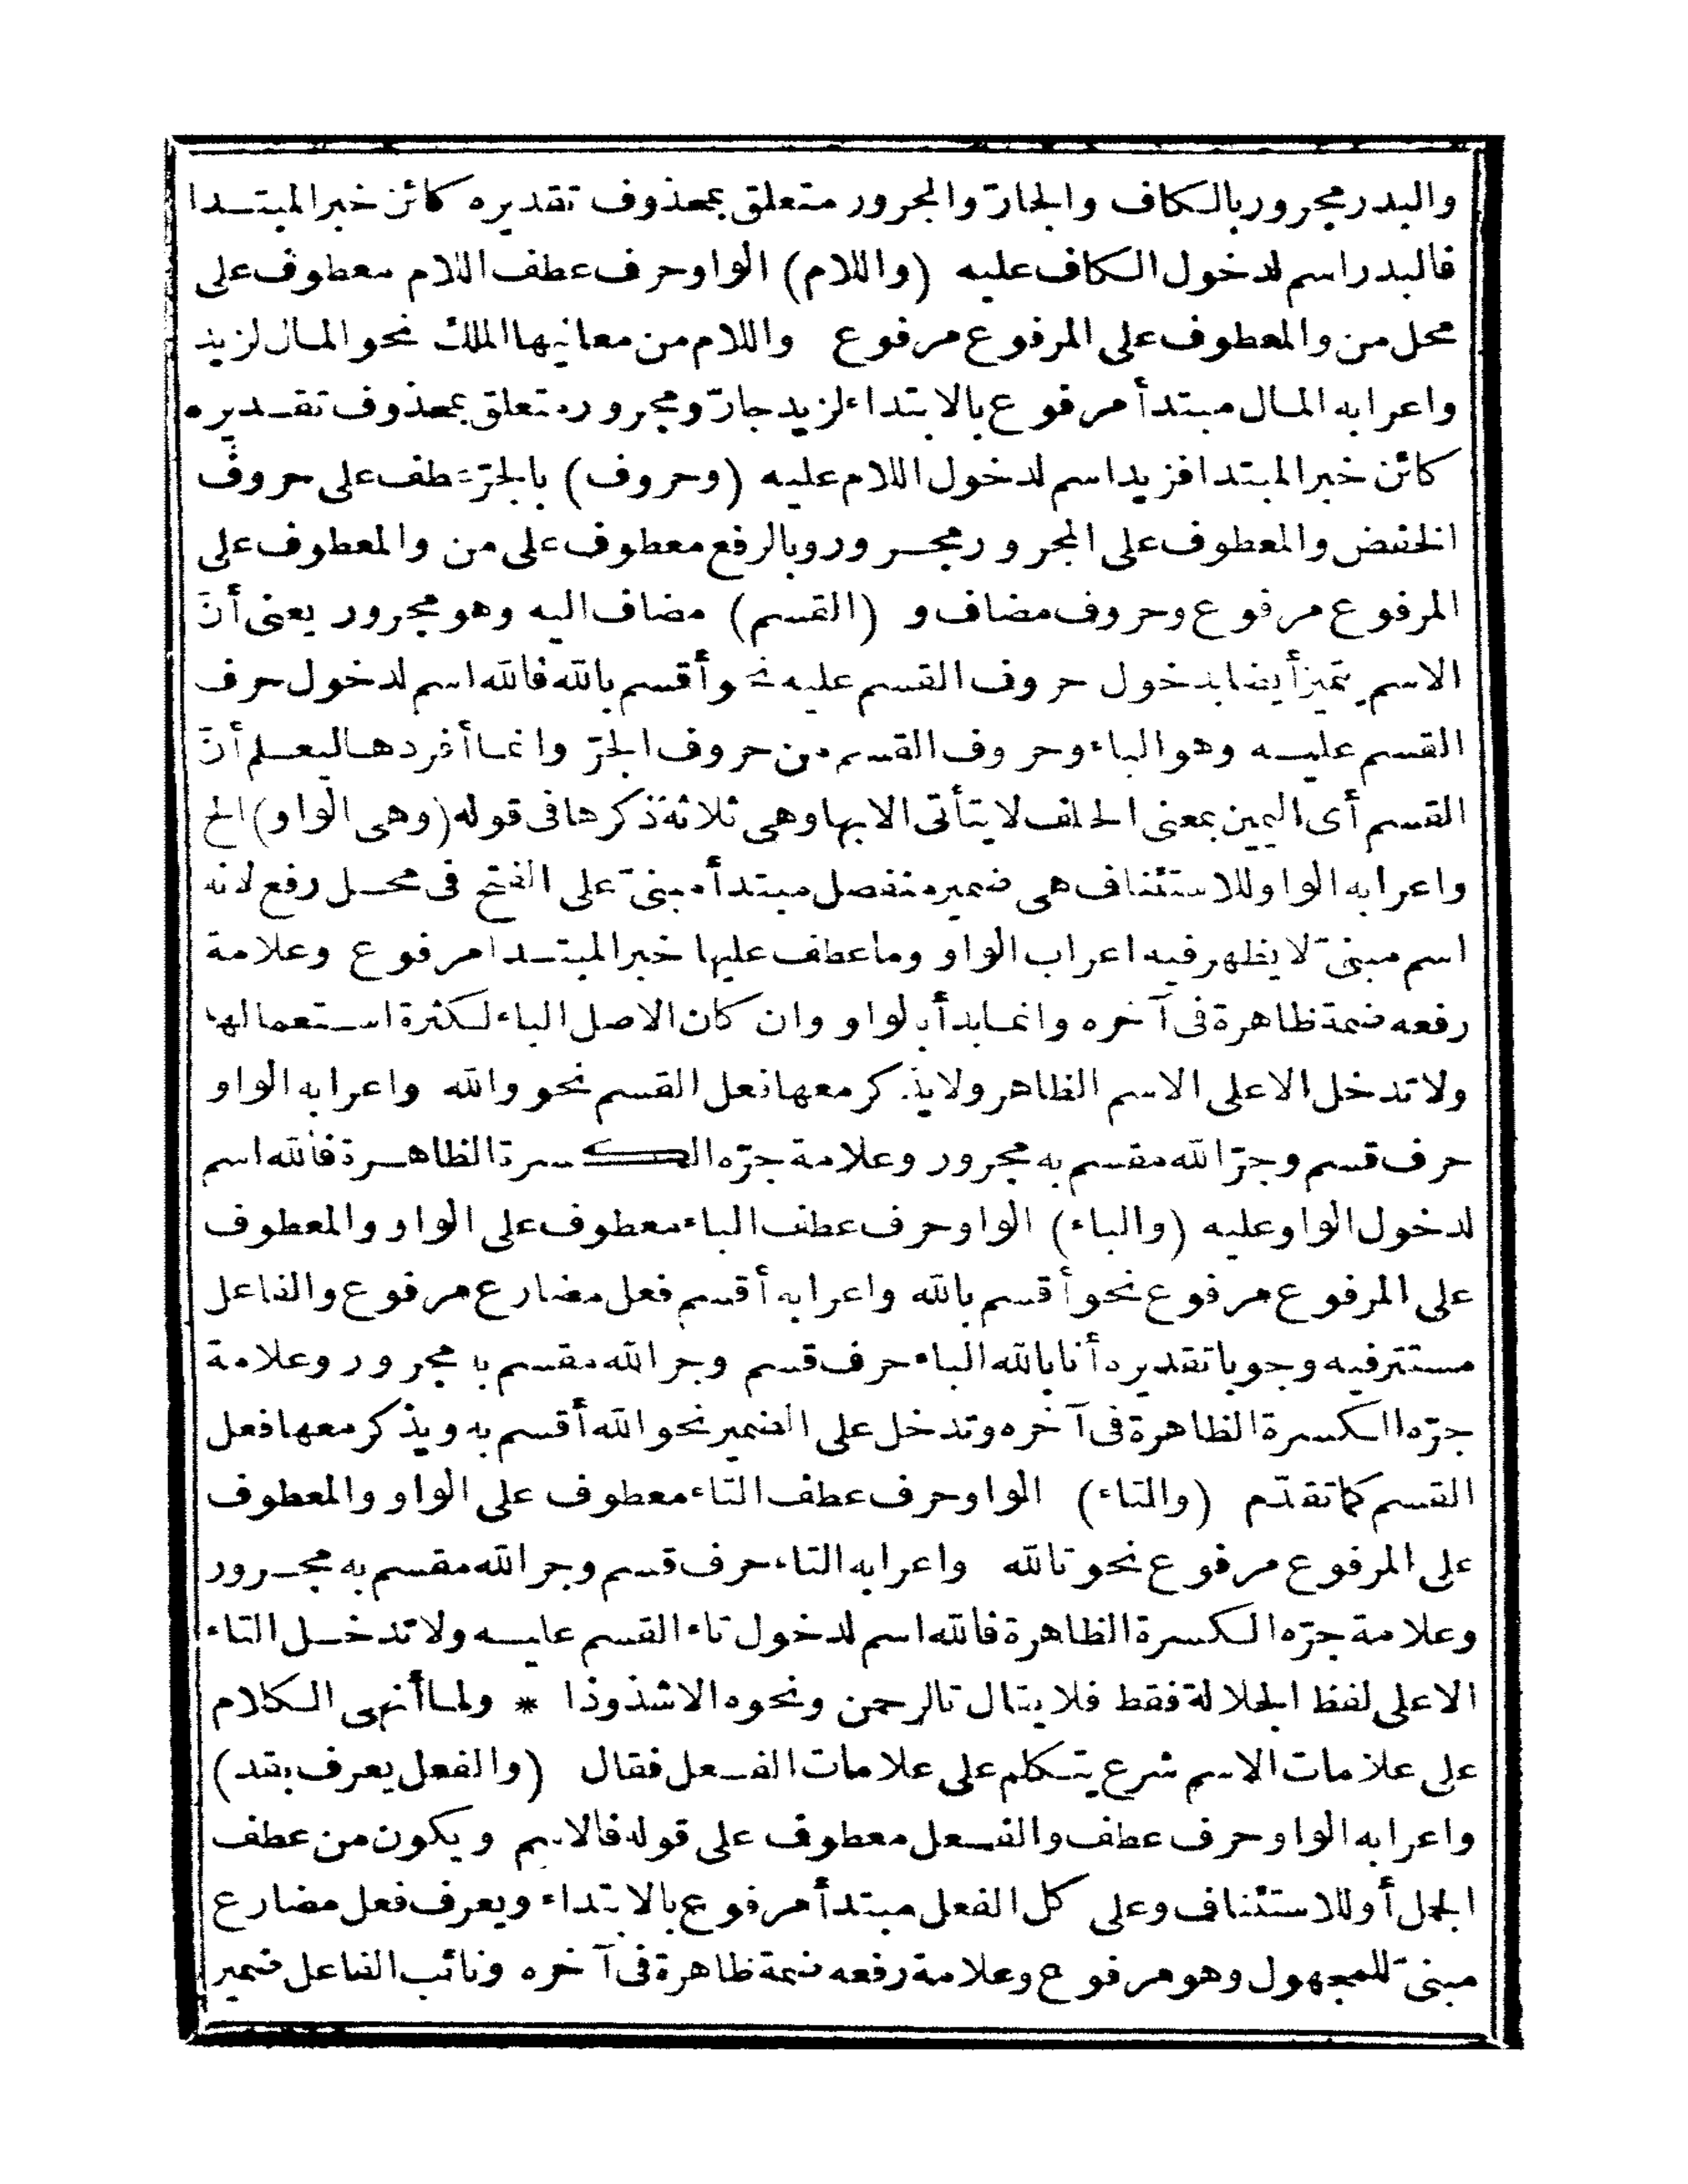 والبدر مجرور بالكاف والجارّ والمجرور متعلق بمحذوف تقديره كائن خبر المبتدا
فالبدر اسم لدخول الكاف عليه (واللام) الواو حرف عطف اللام معطوف على
محل من والمعطوف على المرفوع مرفوع واللام من معانيها الملك نحو المال لزيد
واعرابه المال مبتدأ مرفوع بالابتداء لزيد جارّ ومجرور متعلق بمحذوف تقديره
كائن خبر المبتدا فزيد اسم لدخول اللام عليه (وحروف) بالجرّ عطف على حروف
الخفض والمعطوف على المجرور مجرور وبالرفع معطوف على من والمعطوف على
المرفوع مرفوع وحروف مضاف و (القسم) مضاف اليه وهو مجرور يعنى أنّ
الاسم يتميز أيضا بدخول حروف القسم عليه نحو أقسم بالله فالله اسم لدخول حرف
القسم عليه وهو الباء وحروف القسم من حروف الجرّ وانما أفردها ليعلم أنّ
القسم أى اليمين بمعنى الحلف لا يتأتى الا بها وهى ثلاثة ذكرها فى قوله (وهى الواو) الخ
واعرابه الواو للاستئناف هى ضمير منفصل مبتدأ مبنىّ على الفتح فى محل رفع لانه
اسم مبنىّ لا يظهر فيه اعراب الواو وما عطف عليها خبر المبتدا مرفوع وعلامة
رفعه ضمة ظاهرة فى آخره وانما بدأ بالواو وان كان الاصل الباء لكثرة استعمالها
ولا تدخل الا على الاسم الظاهر ولا يذكر معها فعل القسم نحو والله واعرابه الواو
حرف قسم وجرّ الله مقسم به مجرور وعلامة جرّه الكسرة الظاهرة فالله اسم
لدخول الواو عليه (والباء) الواو حرف عطف الباء معطوف على الواو والمعطوف
على المرفوع مرفوع نحو أقسم بالله واعرابه أقسم فعل مضارع مرفوع والفاعل
مستتر فيه وجوبا تقديره أنا بالله الباء حرف قسم وجر الله مقسم به مجرور وعلامة
جرّه الكسرة الظاهرة فى آخره وتدخل على الضمير نحو الله أقسم به ويذكر معها فعل
القسم كما تقدّم (والتاء) الواو حرف عطف التاء معطوف على الواو والمعطوف
على المرفوع مرفوع نحو تالله واعرابه التاء حرف قسم وجر الله مقسم به مجرور
وعلامة جرّه الكسرة الظاهرة فالله اسم لدخول تاء القسم عليه ولا تدخل التاء
الا على لفظ الجلالة فقط فلا يقال تالرحمن ونحوه الا شذوذا * ولما أنهى الكلام
على علامات الاسم شرع يتكلم على علامات الفعل فقال (والفعل يعرف بقد)
واعرابه الواو حرف عطف والفعل معطوف على قوله فالاسم ويكون من عطف
الجمل أو للاستئناف وعلى كل الفعل مبتدأ مرفوع بالابتداء ويعرف فعل مضارع
مبنىّ للمجهول وهو مرفوع وعلامة رفعه ضمة ظاهرة فى آخره ونائب الفاعل ضمير